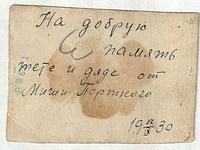 На добрую
память
тете и дяде от
Миши Портного
19 IX 30